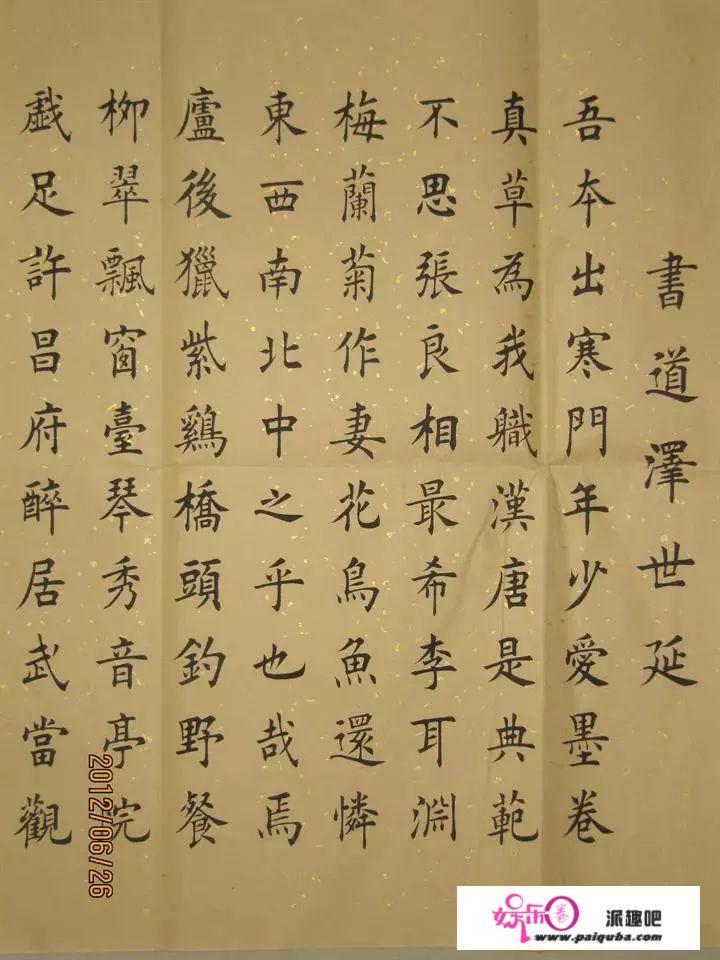 書道澤世延
吾本出寒門年少愛墨卷
真草為我職漢唐是典範
不思張良相最希李耳淵
梅蘭菊作妻花鳥魚還憐
東西南北中之乎也哉焉
廬後獵紫鷄橋頭釣野餐
柳翠飄窗臺琴秀音亭院
戲足許昌府醉居武當觀
2012/06/26
娱乐圈
派趣吧
www.paiquba.com